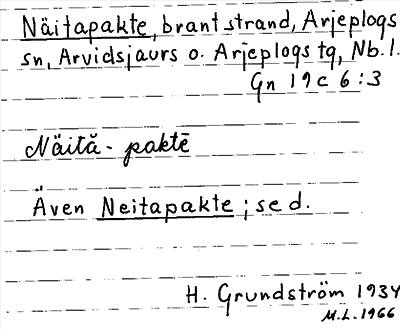 Näitapakte, brant strand, Arjeplogs
sn, Arvidsjaurs o. Arjeplogs tg, Nb. l.
Gn 19c 6:3
Näità - paktē
Även Neitapakte; se d.
H. Grundström 1934
M.L. 1966